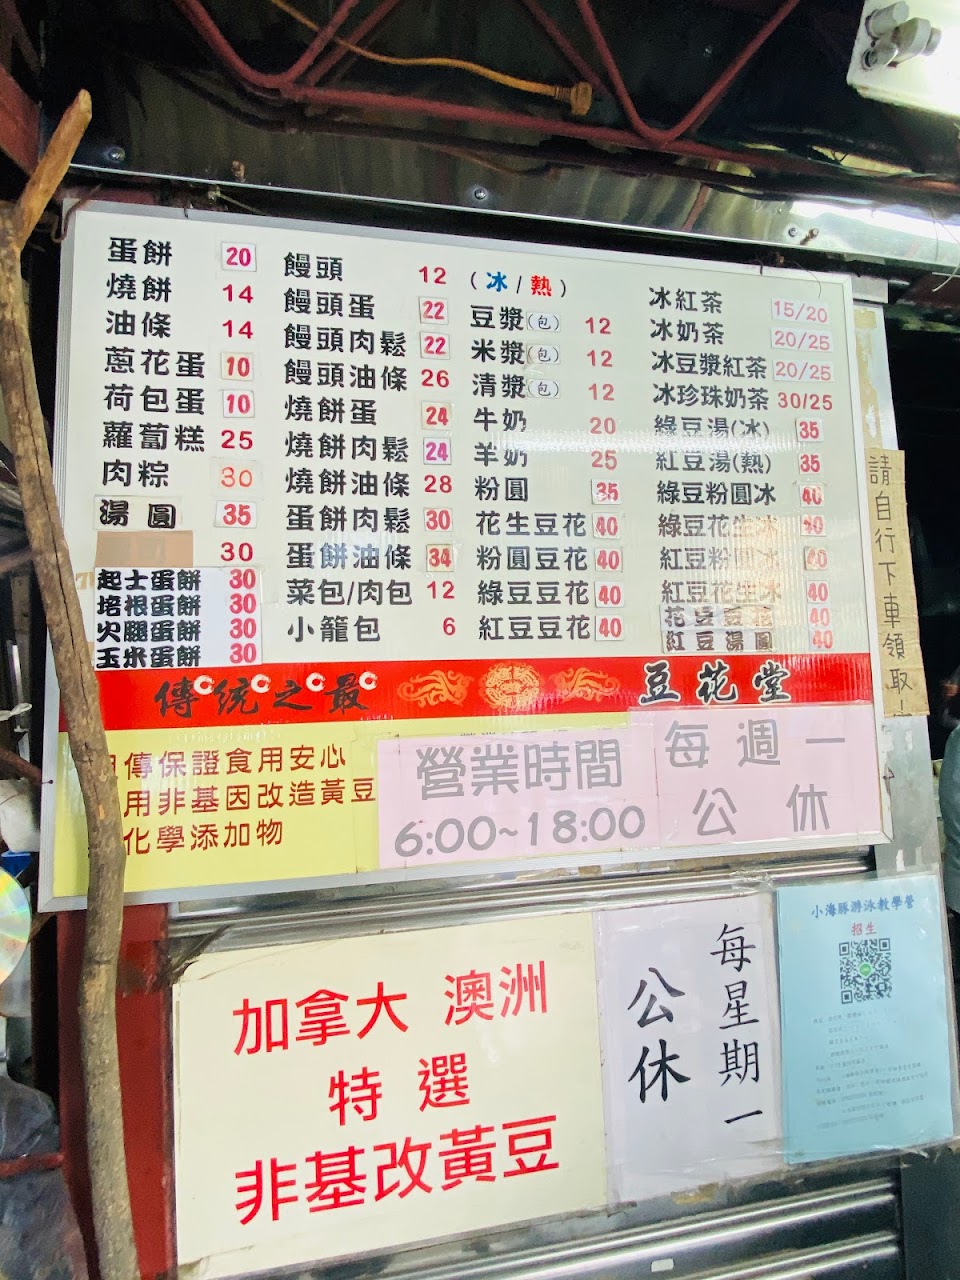 蛋餅 20
燒餅 14
油條 14
蔥花蛋 10
荷包蛋 10
蘿蔔糕 25
肉粽 30
湯圓 35
30
起士蛋餅 30
培根蛋餅 30
火腿蛋餅 30
玉米蛋餅 30
饅頭 12
饅頭蛋 22
饅頭肉鬆 22
饅頭油條 26
燒餅蛋 24
燒餅肉鬆 24
燒餅油條 28
蛋餅肉鬆 30
蛋餅油條 34
菜包/肉包 12
小籠包 6
(冰/熱)
豆漿(包) 12
米漿(包) 12
清漿(包) 12
牛奶 20
羊奶 25
粉圓 35
花生豆花 40
粉圓豆花 40
綠豆豆花 40
紅豆豆花 40
冰紅茶 15/20
冰奶茶 20/25
冰豆漿紅茶 20/25
冰珍珠奶茶 30/25
綠豆湯(冰) 35
紅豆湯(熱) 35
綠豆粉圓冰 40
綠豆花生冰 40
紅豆粉圓冰 40
紅豆花生冰 40
花豆豆花 40
紅豆湯圓 40
傳統之最 豆花堂
傳保證食用安心
用非基因改造黃豆
化學添加物
營業時間
6:00~18:00
每週一
公休
請自行下車領取
加拿大 澳洲
特選
非基改黃豆
每星期一
公休
小海豚游泳教學營
招生